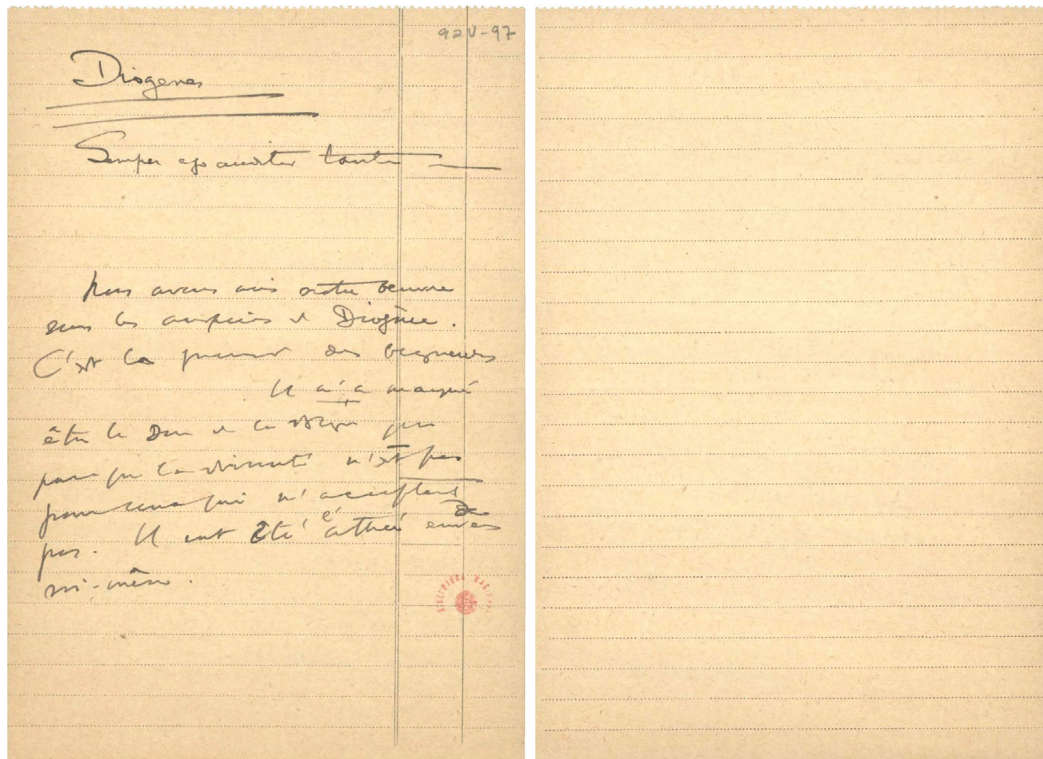 92V-97
Diogenes
Semper ego auditor tantum
Nous avons mis notre oeuvre
sous les auspices de Diogène.
C'est le premier des
Il n'a manqué
être le Dieu de la que
parce que la divinité n'est pas
pour ceux qui n'acceptent
pas. Il eut été athée envers
soi-même.